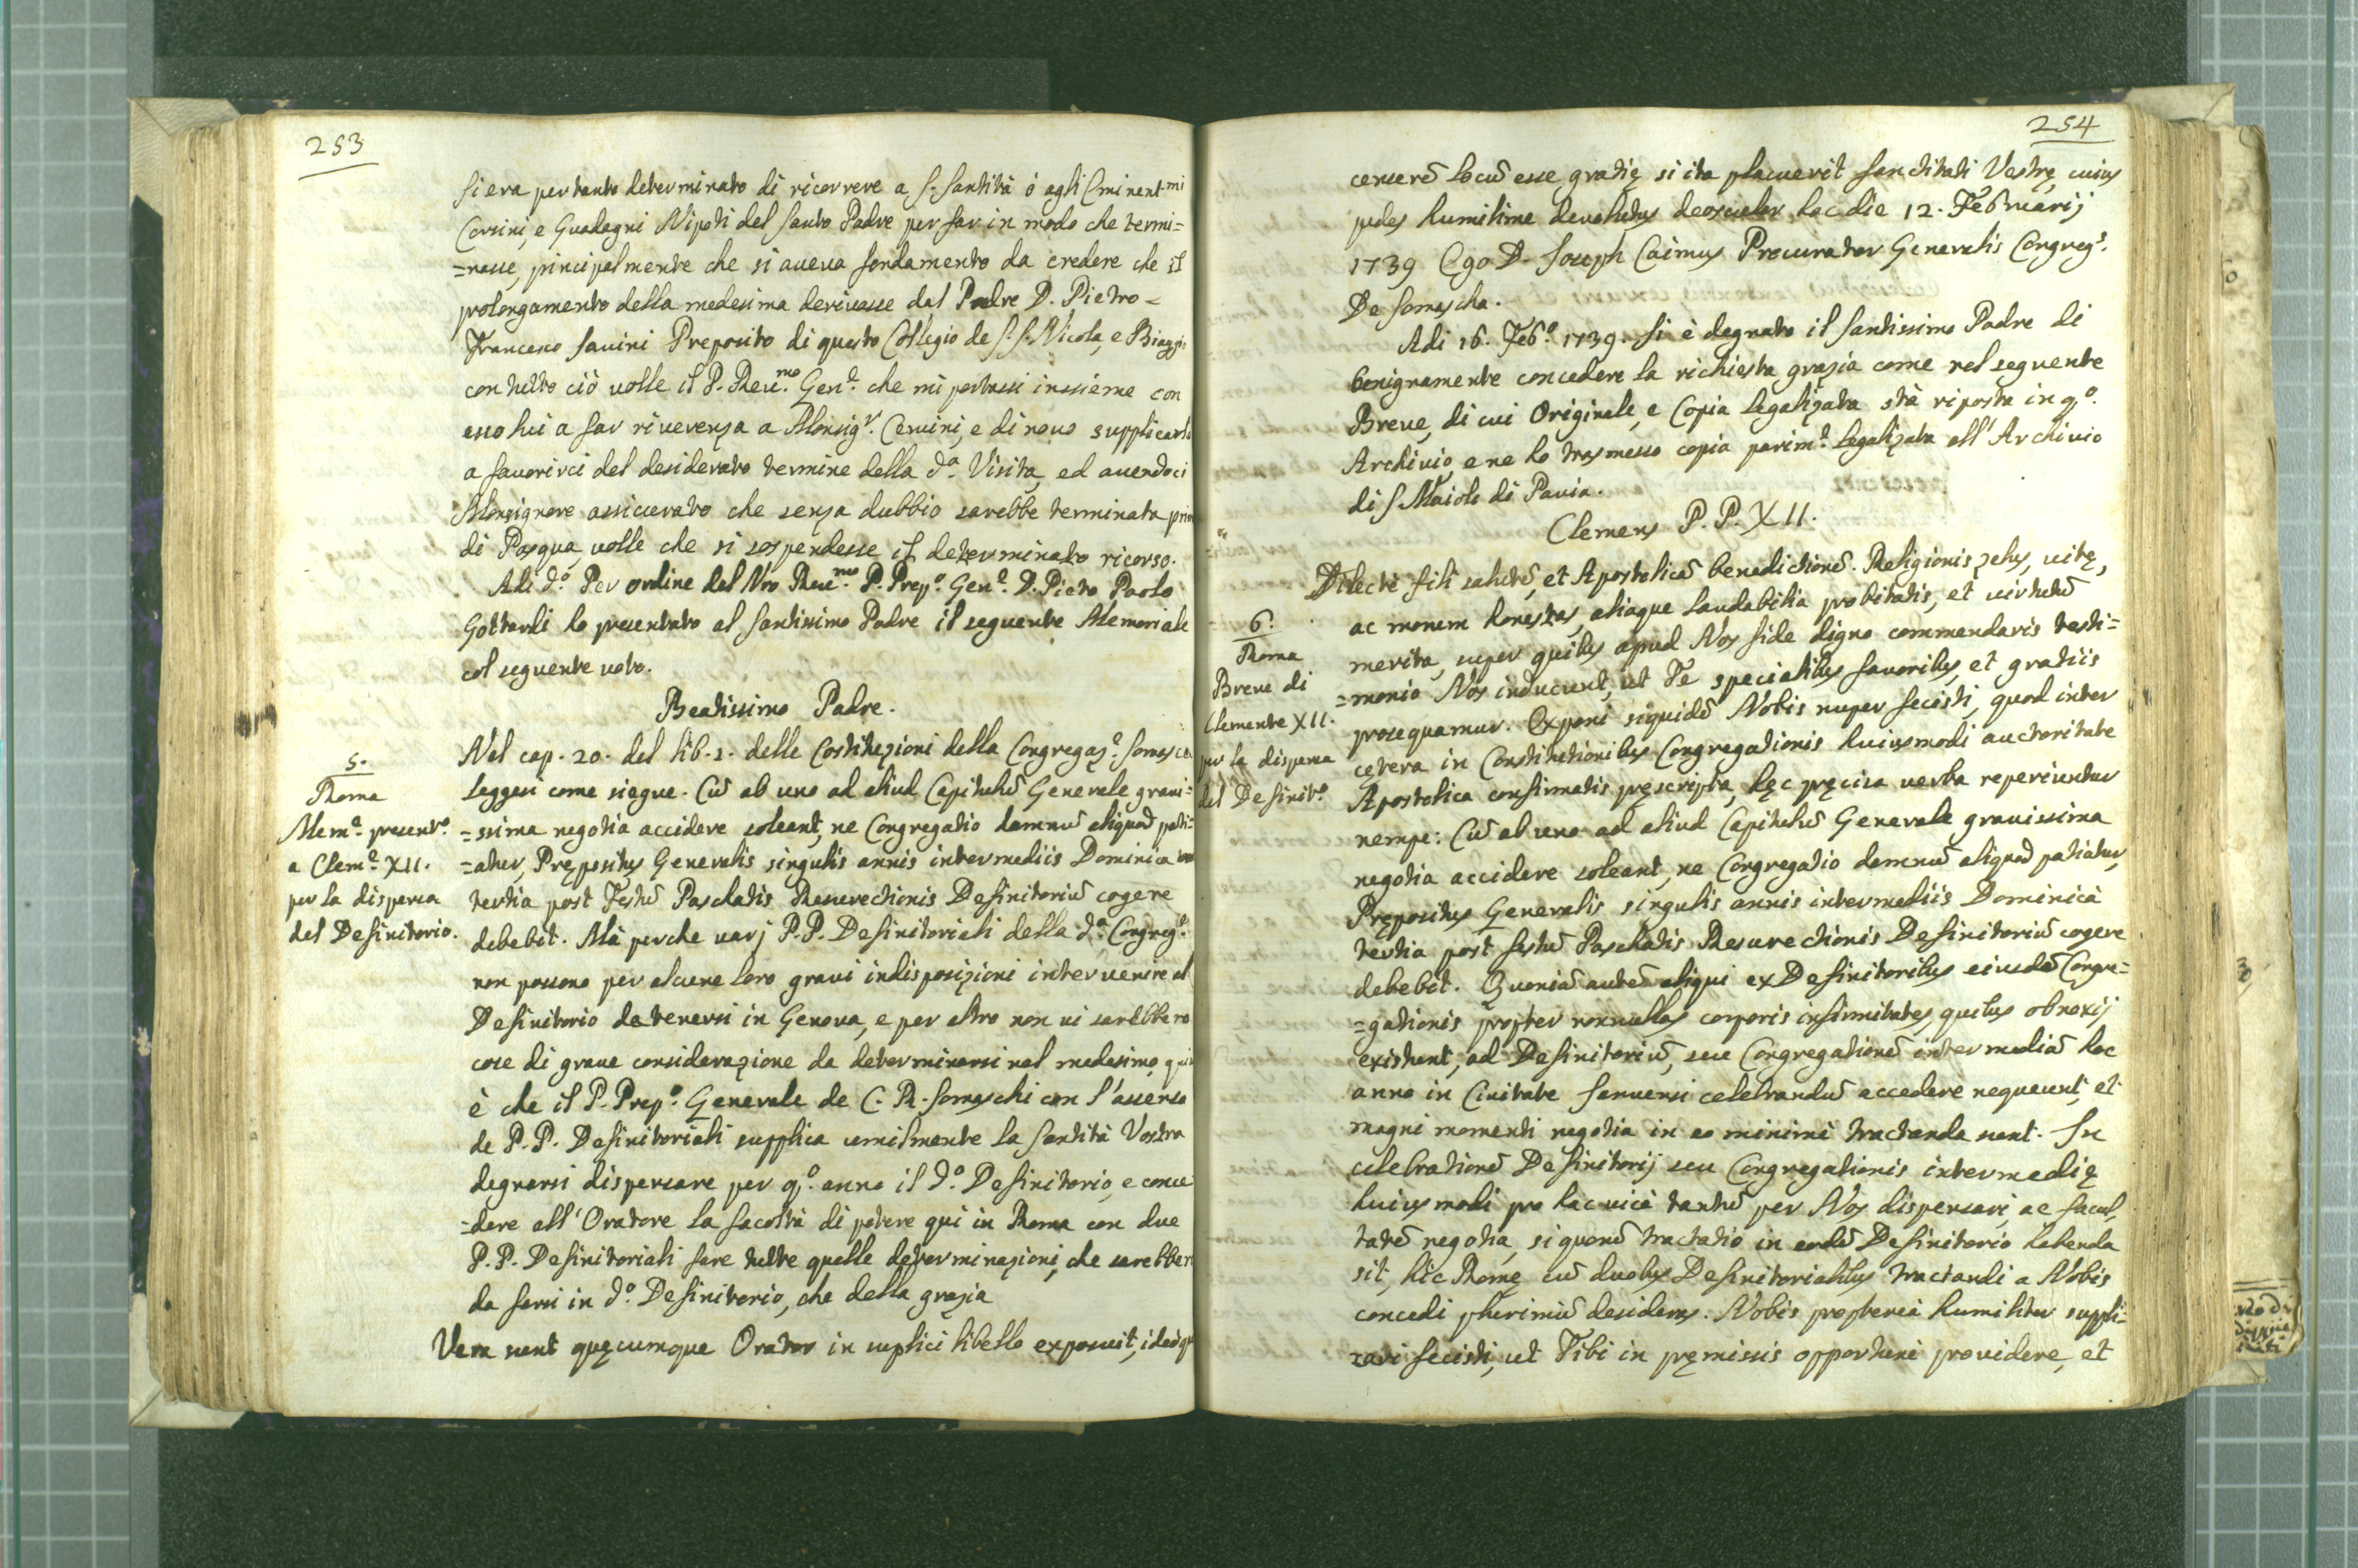 253
Si era pertanto determinato di ricorrere a S. Santità ò agli Eminent.mi
Corsini, e Guadagni Nipoti del Santo Padre per far in modo che termi=
=nasse, principalmente che si aueua fondamento da credere che il
prolongamento della medesima deriuasse dal Padre D. Pietro-
Francesco Sauini Preposito di questo Collegio de S.S. Nicola, e Biaggio
con tutto ciò uolle il P. Reu.mo Gen.e che mi portassi inssieme con
esso lui a far riuerenza a Monsig.r Ceruini, e di nouo supplicarlo
a fauorirci del desiderato termine della d.a Visita, ed auendoci
Monsignore assicurato che senza dubbio sarebbe terminata prima
di Pasqua, uolle che si sospendesse il determinato ricorso.
Adi d.o Per ordine del Nro Reu.mo P. Prep.o Gen.e D. Pietro Paolo
Gottardi ho presentato al Santissimo Padre il seguente Memoriale
col seguente uoto.
Beatissimo Padre.
5.
Roma
Mem.e present.o
a Clem.e XII.
per la dispensa
del Definitorio.
Nel cap. 20. del lib. 2. delle Costituzioni della Congregaz.e Somasca
leggesi come siegue. Cū ab uno ad aliud Capitulū Generale graui=
=ssima negotia accidere soleant, ne Congregatio damnū aliquod pati=
=atur, Prępositus Generalis singulis annis intermediis Dominica
tertia post Festū Paschatis Resurectionis Definitoriū cogere
debebit. Mà perche uarj P.P. Definitoriali della d.a Congreg.e
non possono per alcune loro graui indisposizioni interuenire al
Definitorio da tenersi in Genoua, e per altro non ui sarebbero
cose di graue considerazione da determinarsi nel medesimo, qui
è che il P. Prep.o Generale de C. R. Somaschi con l'assenso
de P.P. Definitoriali supplica umilmente la Santità Vostra
degnarsi dispensare per q.o anno il d.o Definitorio, e conce
=dere all'Oratore la facoltà di potere qui in Roma con due
P.P. Definitoriali fare tutte quelle determinazioni, che sarebbero
da farsi in d.o Definitorio, che della grazia
Vera sunt quęcumque Orator in suplici libello exposuit, ideòq
254
censerē locū esse gratię si ita placuerit Sanctitati Vestrę cuius
pedes humilime deuolutus deosculor hac die 12. Februarij
1739 Ego D. Joseph Caimus Procurator Generalis Congreg.s
De Somascha.
Adi 16. Feb.o 1739. Si è degnato il Santissimo Padre di
benignamente concedere la richiesta grazia come nel seguente
Breue, di cui Originale, e Copia legalizata stà riposta in q.o
Archiuio, e ne ho trasmesso copia parim.e legalizata all'Archiuio
di S Maiolo di Pauia.
Clemens P.P. XII.
6.
Roma
Breue di
Clemente XII.
per la dispensa
del Definit.o
Dilecte fili salutē, et Apostolicā benedictionē. Religionis zelus, uitę,
ac morum honestas, aliaque laudabilia probitatis, et uirtutū
merita, super quibus apud Nos fide digno commendaris testi=
=monio Nos inducunt, ut Te specialibus fauoribus, et gratiis
prosequamur. Exponi siquidē Nobis nuper fecisti, quod inter
cętera in Constitutionibus Congregationis huiusmodi auctoritate
Apostolica confirmatis pręscripta, hęc pręcisa uerba reperiuntur
nempe: Cū ab uno ad aliud Capitulū Generale grauissima
negotia accidere soleant, ne Congregatio damnū aliquod patiatur,
Prępositus Generalis singulis annis intermediis Dominicà
tertia post festū Paschatis Resurectionis Definitoriū cogere
debebit. Quoniā autē aliqui ex Definitoribus eiusdē Congre=
=gationis propter nonnullas corporis infirmitates, quibus obnoxij
existunt, ad Definitoriū, seu Congregationē intermediā hoc
anno in Ciuitate Januensi celebrandū accedere nequeunt, et
magni momenti negotia in eo minimè tractanda sunt. In
celebrationē Definitorij seu Congregationis intermedię
huiusmodi pro hac uicè tantū per Nos dispensari, ac facul,
tatē negotia, si quorū tractatio in eodē Definitorio habenda
sit, hìc Romę cū duobus Definitorialibus tractandi a Nobis
concedi plurimū desideras. Nobis proptereà humiliter suppli=
cari fecisti, ut Tibi in pręmissis opportunè prouidere, et